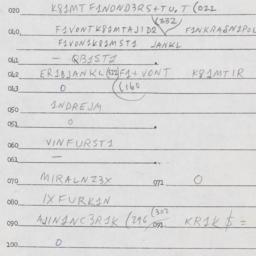 020 K81MTF1NOND3RS+TU,T (022
(332
040 F1VONTK81MTAJ1D2 F1NKRA8N1POL
F1VON1K81MST1 JANKL
041 — QB1ST1
042 ER1BJANKL F1+VONT K81MT1R
043 0 (160
050 1NDREJM
051 0
060 VINFURST1
061 —
070 MIRALNZ3X 071 0
080 IXFURK1N
090 AJIN1NC3R1K (296 (302 091 KR1K $ =
100 0